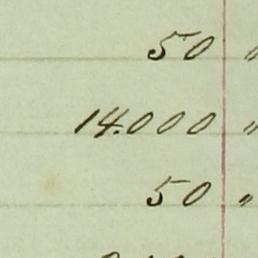 50 "
14.000 "
50 "